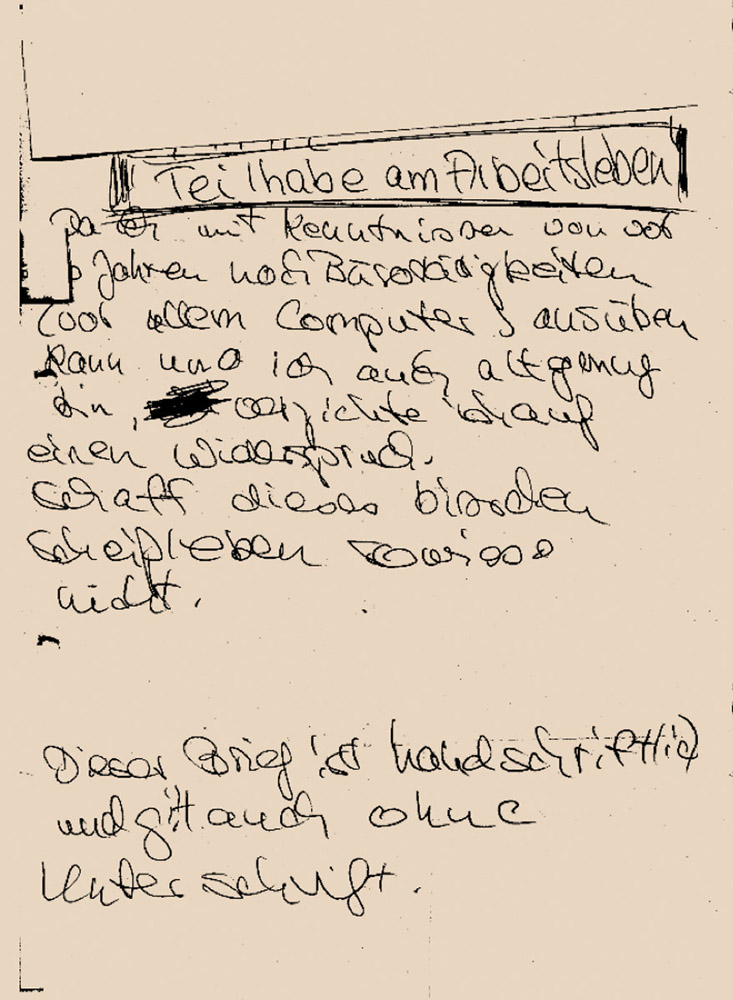 Teilhabe am Arbeitsleben
Da ich mit Kenntnissen von vor
Jahren noch Bürotätigkeiten
(vor allem Computer) ausüben
kann und ich auch alt genug
bin, verzichte ich auf
einen Widerspruch.
Schaff dieses bisschen
Scheißleben sowieso
nicht.
Dieser Brief ist handschriftlich
und gilt auch ohne
Unterschrift.